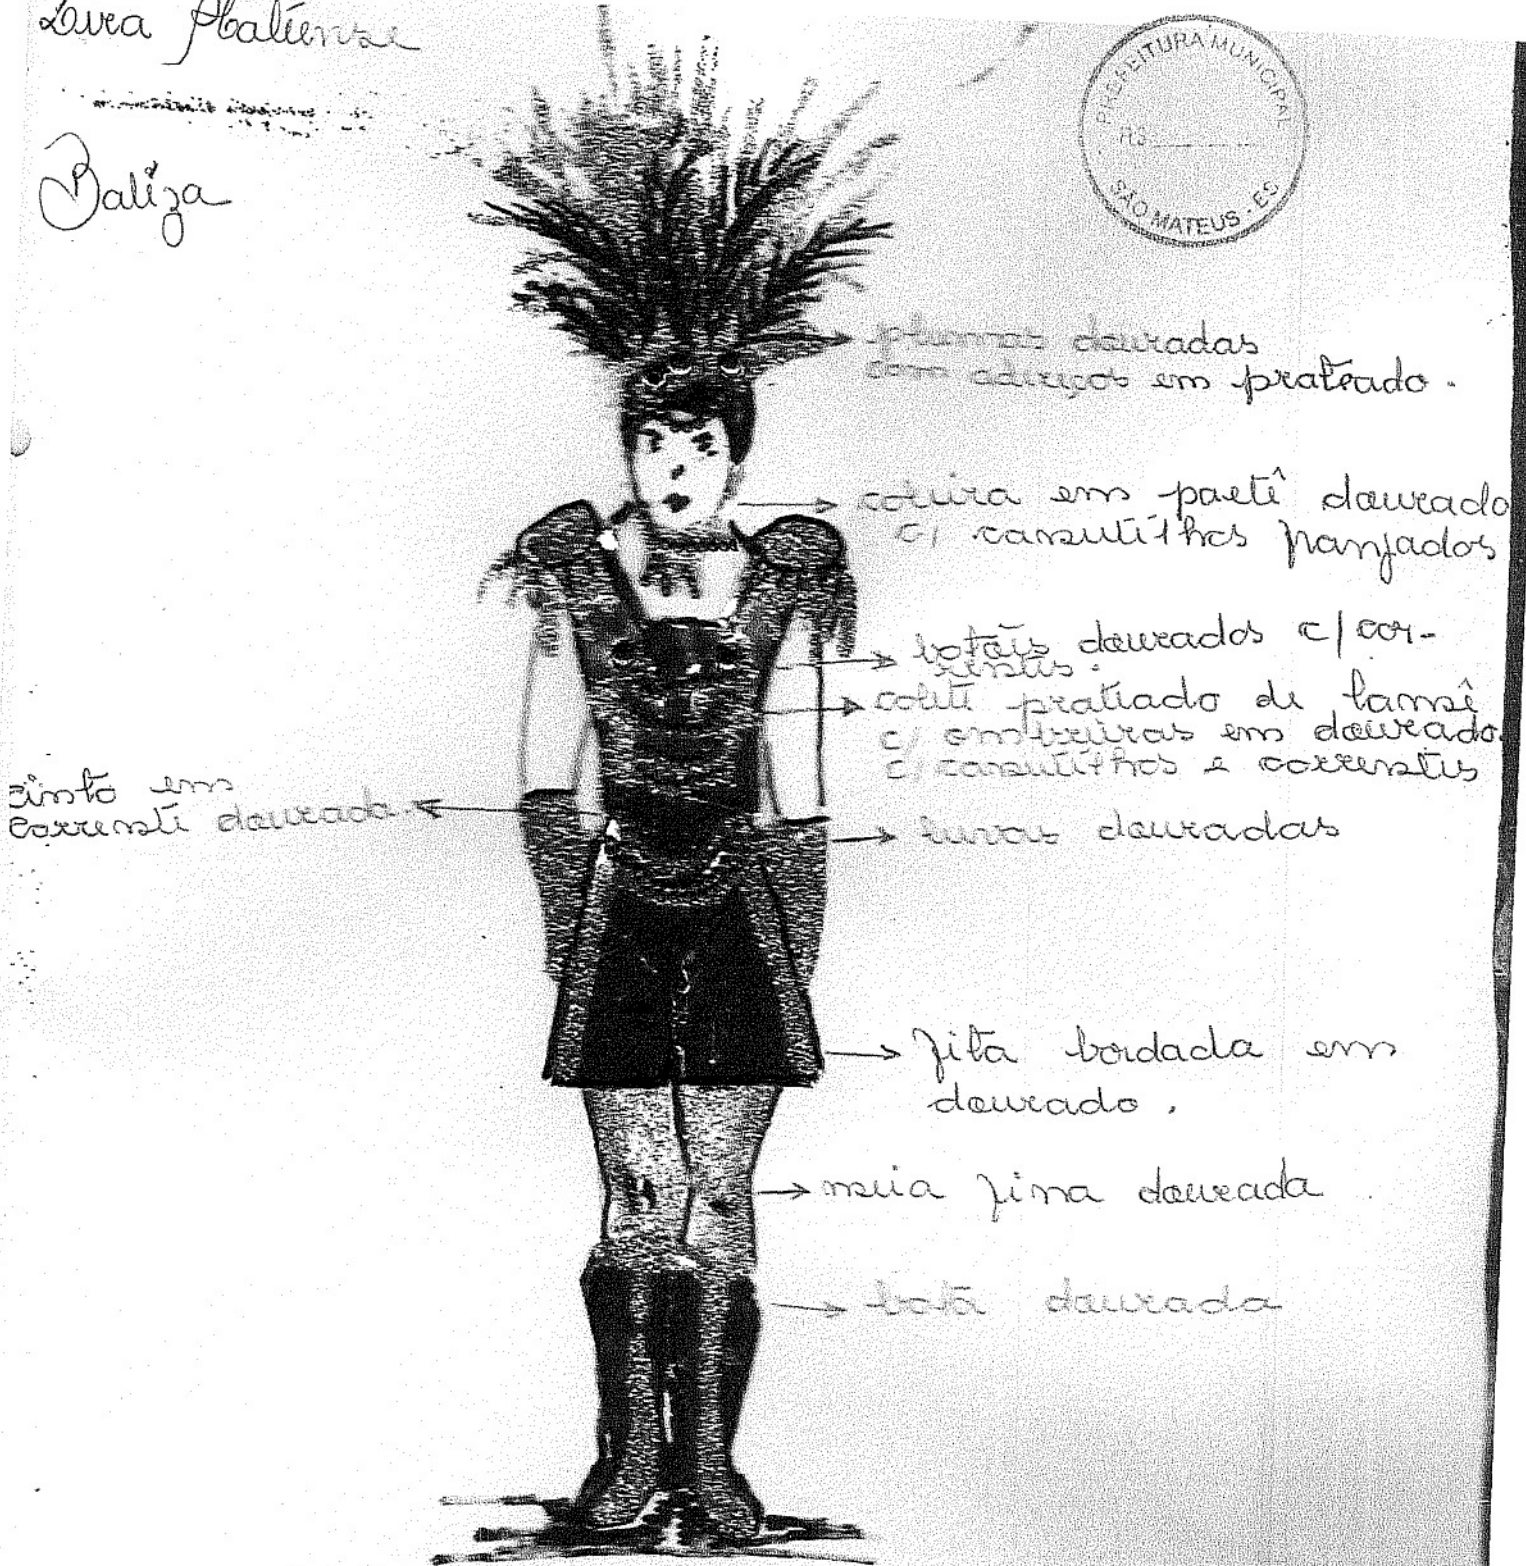 Lira Mateense
Baliza
PREFEITURA MUNICIPAL
FLS.
SÃO MATEUS - ES
plumas douradas
com adereços em prateado.
coleira em paetê dourado
c/ canutilhos franjados
botões dourados c/ cor-
rentes.
colete prateado de lamê
c/ ombreiras em dourado.
c/ canutilhos e correntes
cinto em
corrente dourada.
luvas douradas
fita bordada em
dourado.
meia fina dourada
bota dourada